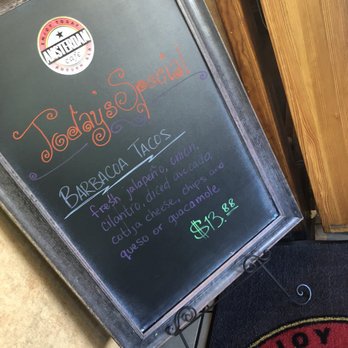 ENJOY TODAY
AMSTERDAM
café
Today's Special
BARBACOA TACOS
fresh jalapeño, onion,
cilantro, diced avocado,
cotija cheese, chips and
queso or guacamole
$13.88
ENJOY